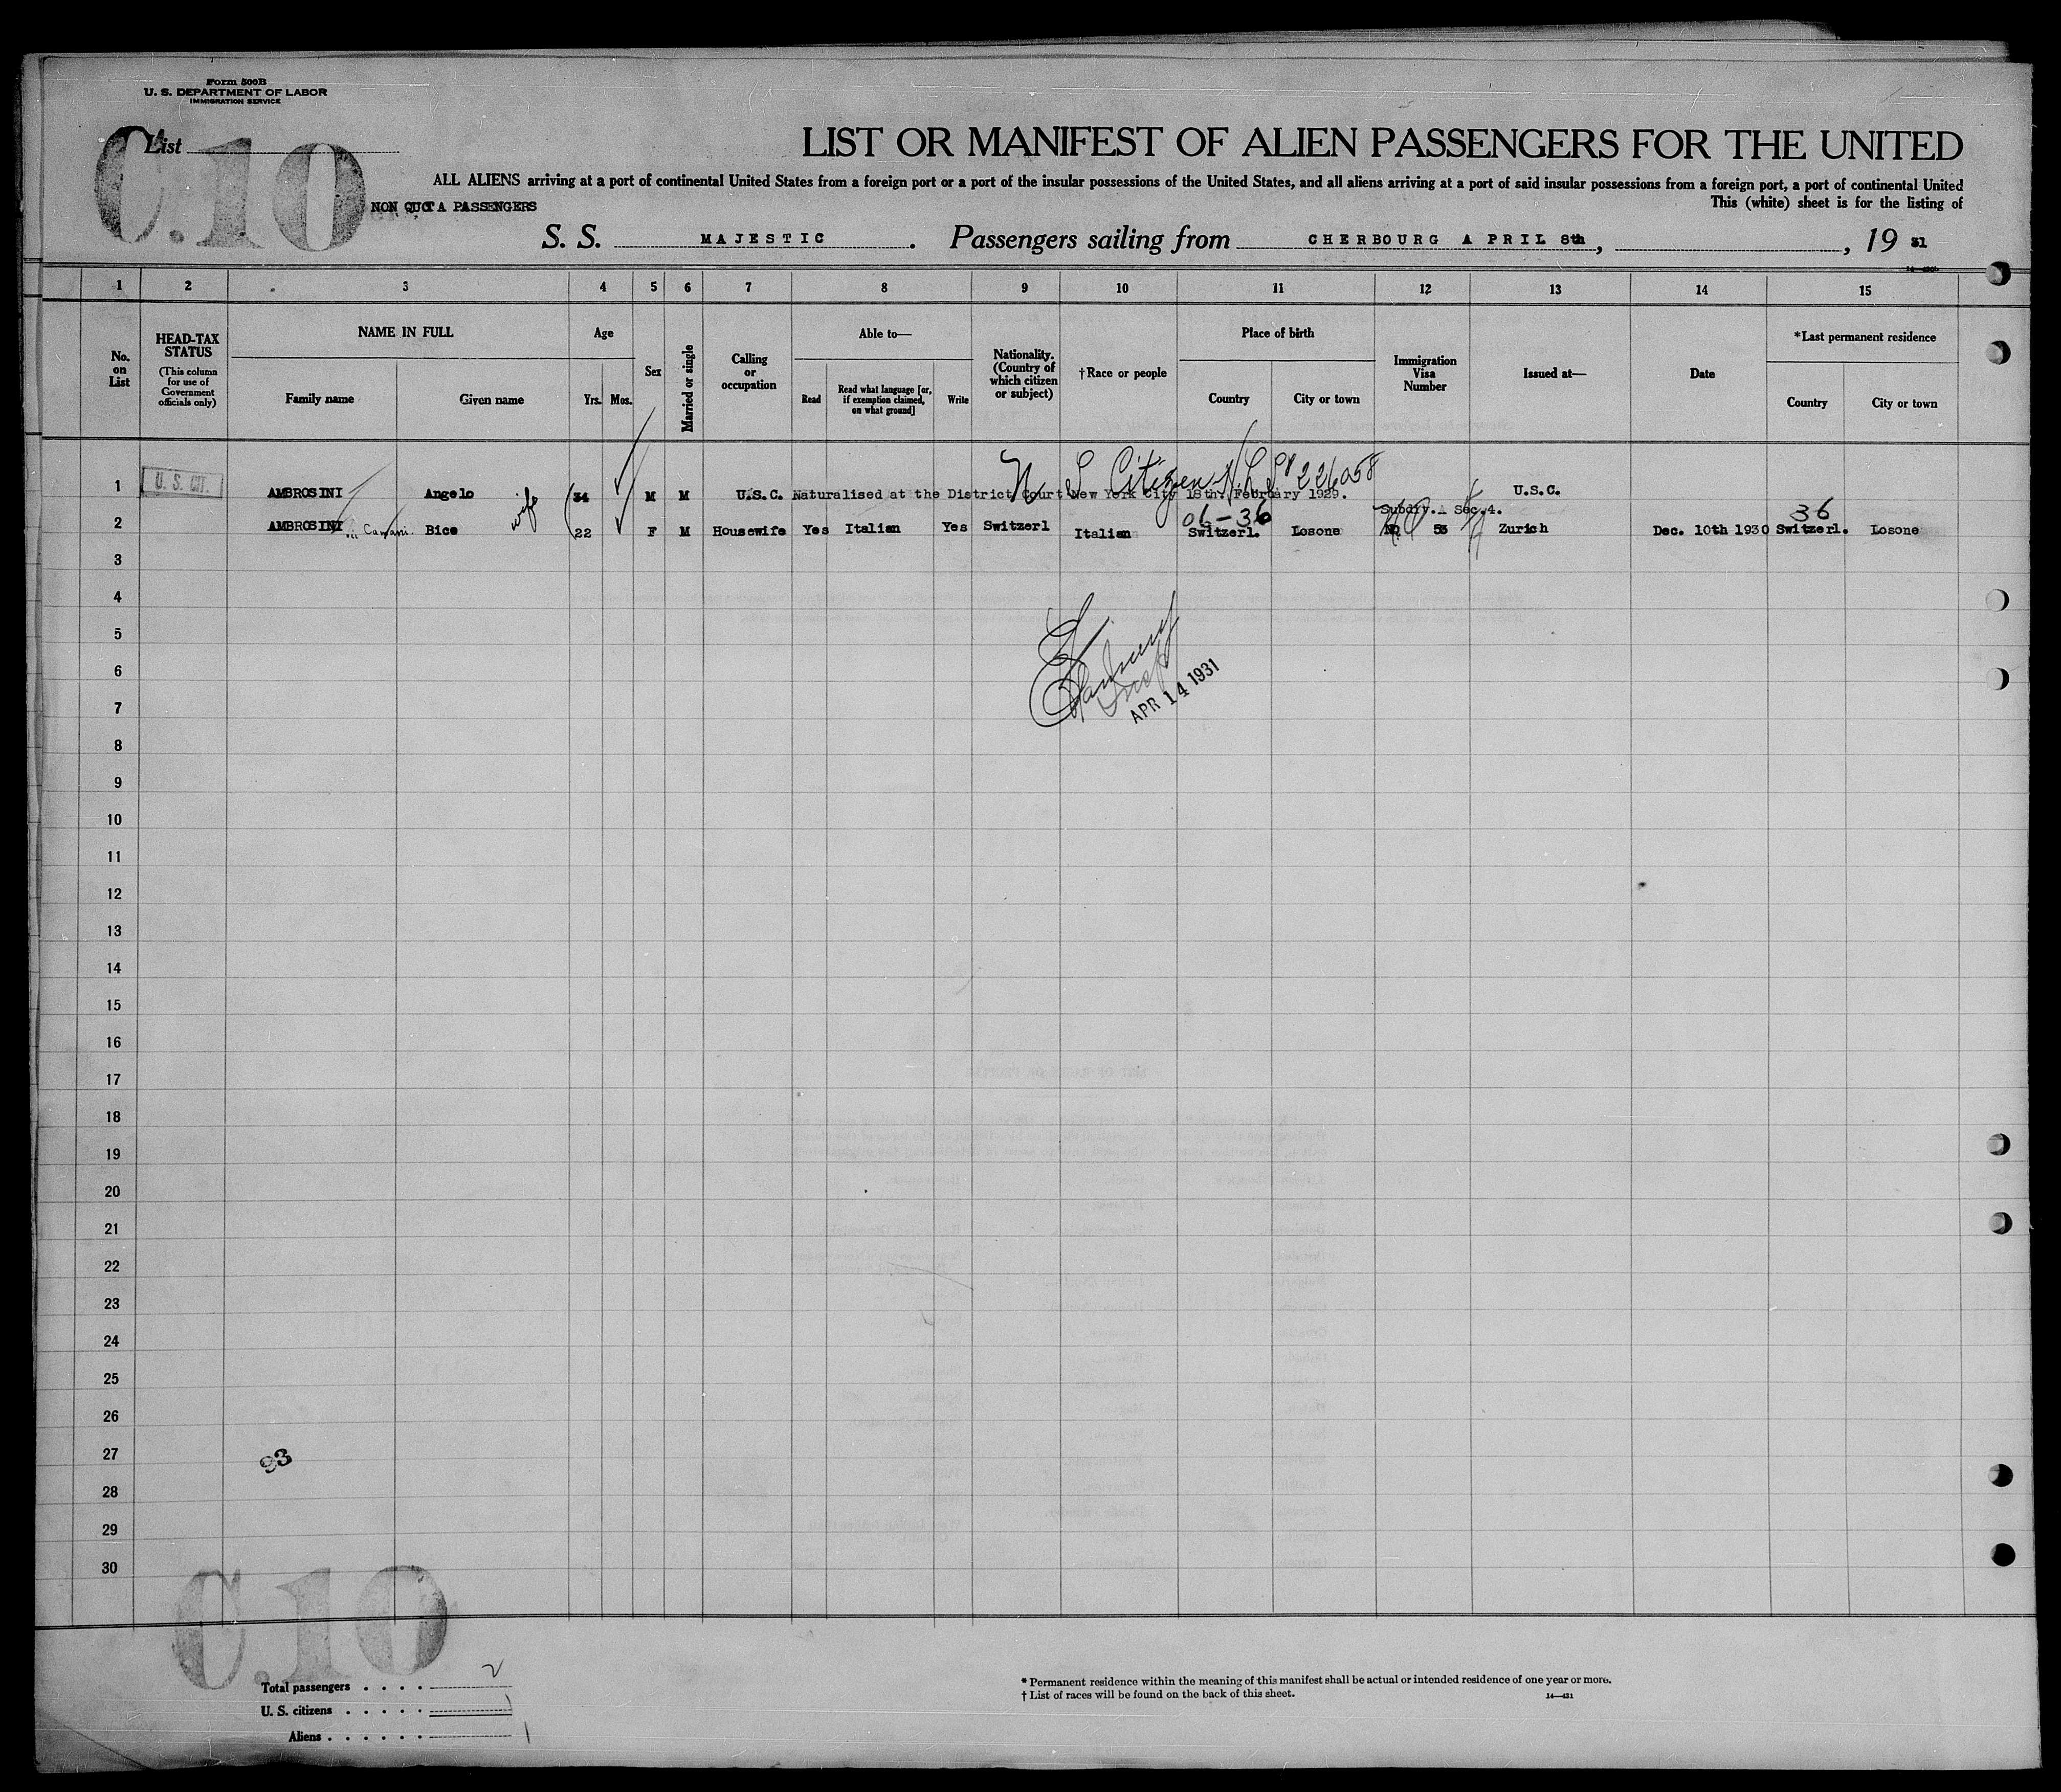 Form 500B
U. S. DEPARTMENT OF LABOR
IMMIGRATION SERVICE
C.10
List
LIST OR MANIFEST OF ALIEN PASSENGERS FOR THE UNITED
ALL ALIENS arriving at a port of continental United States from a foreign port or a port of the insular possessions of the United States, and all aliens arriving at a port of said insular possessions from a foreign port, a port of continental United
NON QUOTA PASSENGERS
This (white) sheet is for the listing of
S. S. MAJESTIC . Passengers sailing from CHERBOURG APRIL 8th , , 19 31
1 2 3 4 5 6 7 8 9 10 11 12 13 14 15
No. on List
HEAD-TAX STATUS
(This column for use of Government officials only)
NAME IN FULL
Family name
Given name
Age
Yrs.
Mos.
Sex
Married or single
Calling or occupation
Able to—
Read
Read what language [or, if exemption claimed, on what ground]
Write
Nationality. (Country of which citizen or subject)
†Race or people
Place of birth
Country
City or town
Immigration Visa Number
Issued at—
Date
*Last permanent residence
Country
City or town
U S Citizen 226058
1 U. S. CIT. AMBROSINI Angelo 34 M M U.S.C. Naturalised at the District Court New York City 18th. February 1929. U.S.C.
wife
06-36 Subdiv.1 Sec.4. 36
2 AMBROSINI Bice 22 F M Housewife Yes Italian Yes Switzerl Italian Switzerl. Losone NQ 53 Zurich Dec. 10th 1930 Switzerl. Losone
3
4
5
6
APR 14 1931
7
8
9
10
11
12
13
14
15
16
17
18
19
20
21
22
23
24
25
26
27
93
28
29
30
C.10
Total passengers . . . . 2
U. S. citizens . . . . . 1
Aliens . . . . . . 1
* Permanent residence within the meaning of this manifest shall be actual or intended residence of one year or more.
† List of races will be found on the back of this sheet.
14—431